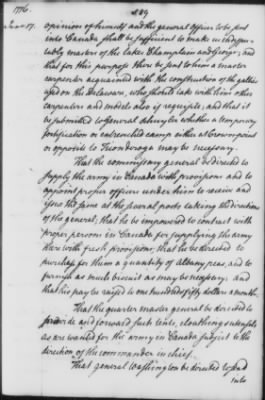 1776.
289
June 17.
opinion of himself and the general officers to be sent
into Canada shall be sufficient to make us indispu-
tably masters of the lakes Champlain and George; and
that for this purpose there be sent to him a master
carpenter acquainted with the construction of the gallies
used on the Delaware, who should take with him other
carpenters and models also if requisite; and that it
be submitted to General Schuyler whether a temporary
fortification or entrenched camp either at Crown point
or opposite to Ticonderoga may be necessary.
That the commissary general be directed to
supply the army in Canada with provisions and to
appoint proper officers under him to receive and
issue the same at the several posts taking the directions
of the general; that he be empowered to contract with
proper persons in Canada for supplying the army
there with fresh provisions; that he be directed to
purchase for them a quantity of Albany peas, and to
furnish as much biscuit as may be necessary: and
that his pay be raised to one hundred & fifty dollars a month.
That the quarter master general be directed to
provide and forward such tents, cloathing & utensils
as are wanted for the army in Canada subject to the
direction of the commander in chief.
That general Washington be directed to send
into